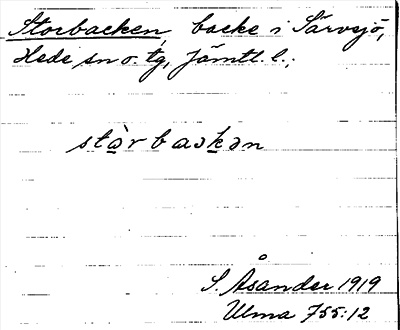 Storbacken, backe i Särvsjö,
Hede sn o. tg, Jämtl. l.;
stɑ̀rbaɔkən
S. Åsander 1919
Ulma 755:12